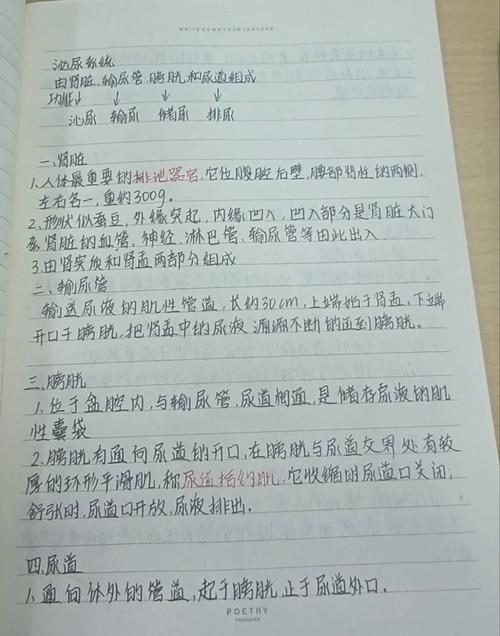 WRITE DOWN YOUR LEGENDS
泌尿系统
由肾脏、输尿管、膀胱和尿道组成
功能↓ ↓ ↓ ↓
泌尿 输尿 储尿 排尿
一、肾脏
1.人体最重要的排泄器官,它位腹腔后壁,腰部脊柱的两侧,
左右各一,重约300g。
2.形状似蚕豆,外缘突起,内缘凹入,凹入部分是肾脏大门
肾脏的血管、神经、淋巴管、输尿管等由此出入
3.由肾实质和肾盂两部分组成
二、输尿管
输送尿液的肌性管道,长约30cm,上端始于肾盂,下端
开口于膀胱,把肾盂中的尿液源源不断的运到膀胱。
三、膀胱
1.位于盆腔内,与输尿管、尿道相通,是储存尿液的肌
性囊袋
2.膀胱有通向尿道的开口,在膀胱与尿道交界处有较
厚的环形平滑肌,称尿道括约肌,它收缩时尿道口关闭;
舒张时,尿道口开放,尿液排出。
四、尿道
1.通向体外的管道,起于膀胱,止于尿道外口。
POETRY
PRODUCER